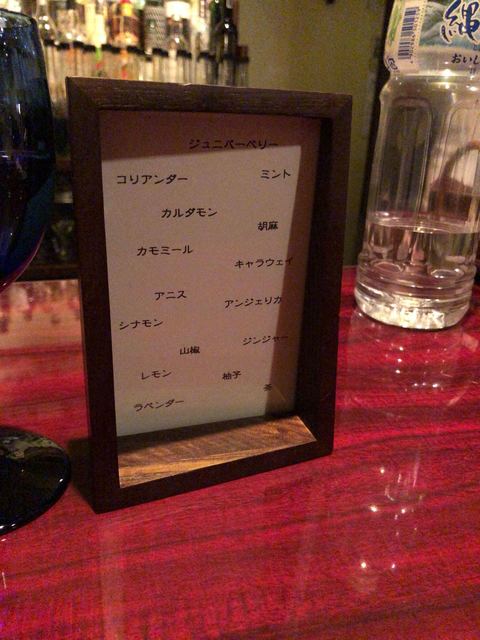 ジュニパーベリー
コリアンダー
ミント
カルダモン
胡麻
カモミール
キャラウェイ
アニス
アンジェリカ
シナモン
ジンジャー
山椒
レモン
柚子
茶
ラベンダー
縄
おいし